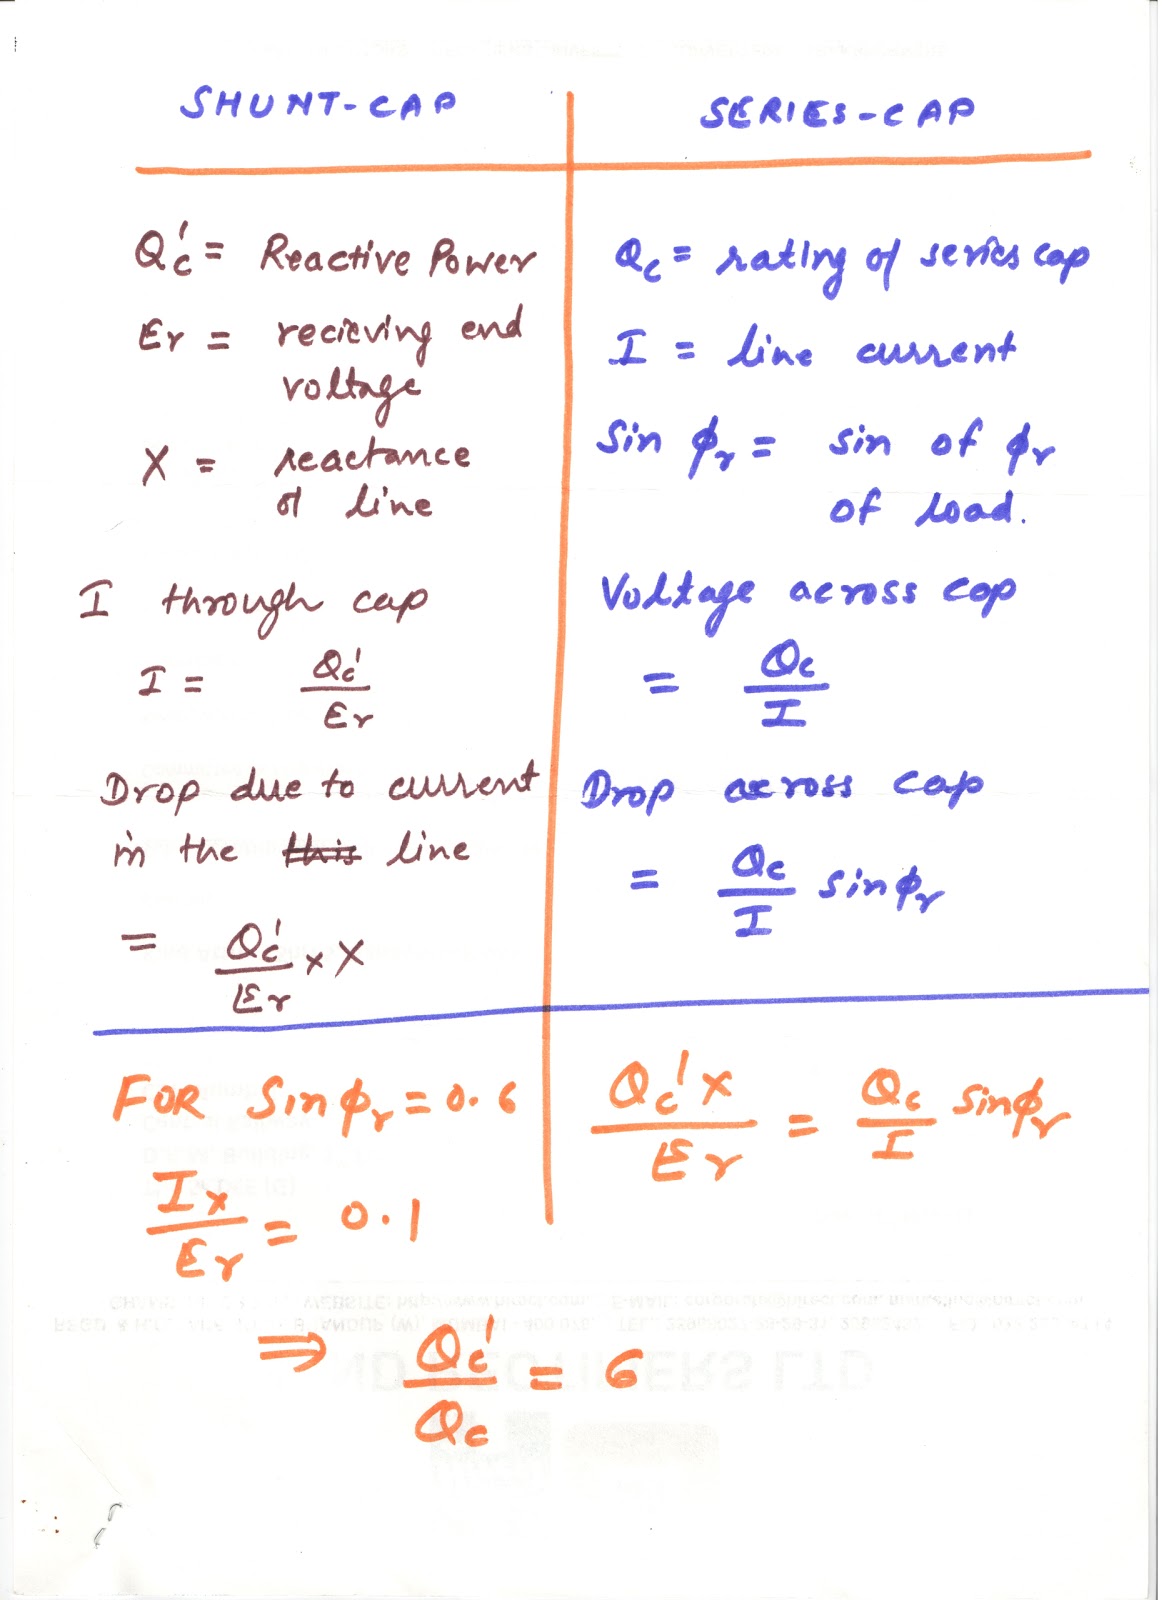 SHUNT-CAP
Qc' = Reactive Power
Er = recieving end
voltage
X = reactance
of line
I through cap
I = Qc' / Er
Drop due to current
in the this line
= Qc' / Er x X
SERIES-CAP
Qc = rating of series cap
I = line current
Sin ϕr = sin of ϕr
of load.
Voltage across cap
= Qc / I
Drop across cap
= Qc / I sinϕr
FOR Sinϕr = 0.6
Ix / Er = 0.1
Qc' x / Er = Qc / I sinϕr
⇒ Qc' / Qc = 6